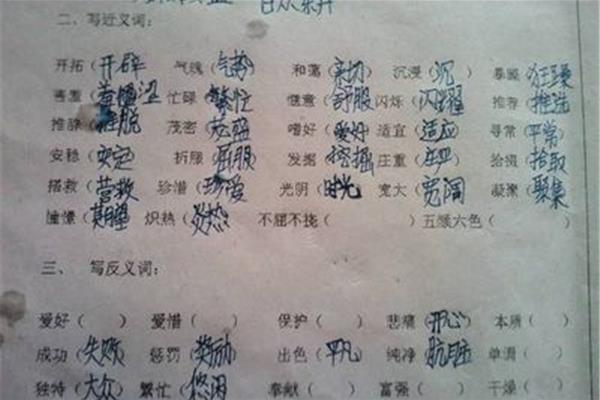 二、写近义词：
开拓（开辟） 气魄（气势） 和蔼（亲切） 沉浸（沉） （狂躁
害羞（羞 忙碌（繁忙） 惬意（舒服） 闪烁（闪耀） 推荐（推选
推辞（推脱） 茂密（茂盛） 嗜好（爱好） 适宜（适应） 寻常（平常）
安稳（安定） 折服（屈服） 发掘（挖掘） 庄重（庄严） 拾掇（拾取
搭救（营救） 珍惜（珍爱） 光阴（时光） 宽大（宽阔） 凝聚（聚集
憧憬（期望） 炽热（炎热） 不屈不挠（ ） 五颜六色（ ）
三、 写反义词：
爱好（ ） 爱惜（ ） 保护（ ） 悲痛（开心） 本质（ ）
成功（失败） 惩罚（奖励） 出色（平凡） 纯净（肮脏） 单调（ ）
独特（大众） 繁忙（悠闲） 奉献（ ） 富强（ ） 干燥（ ）